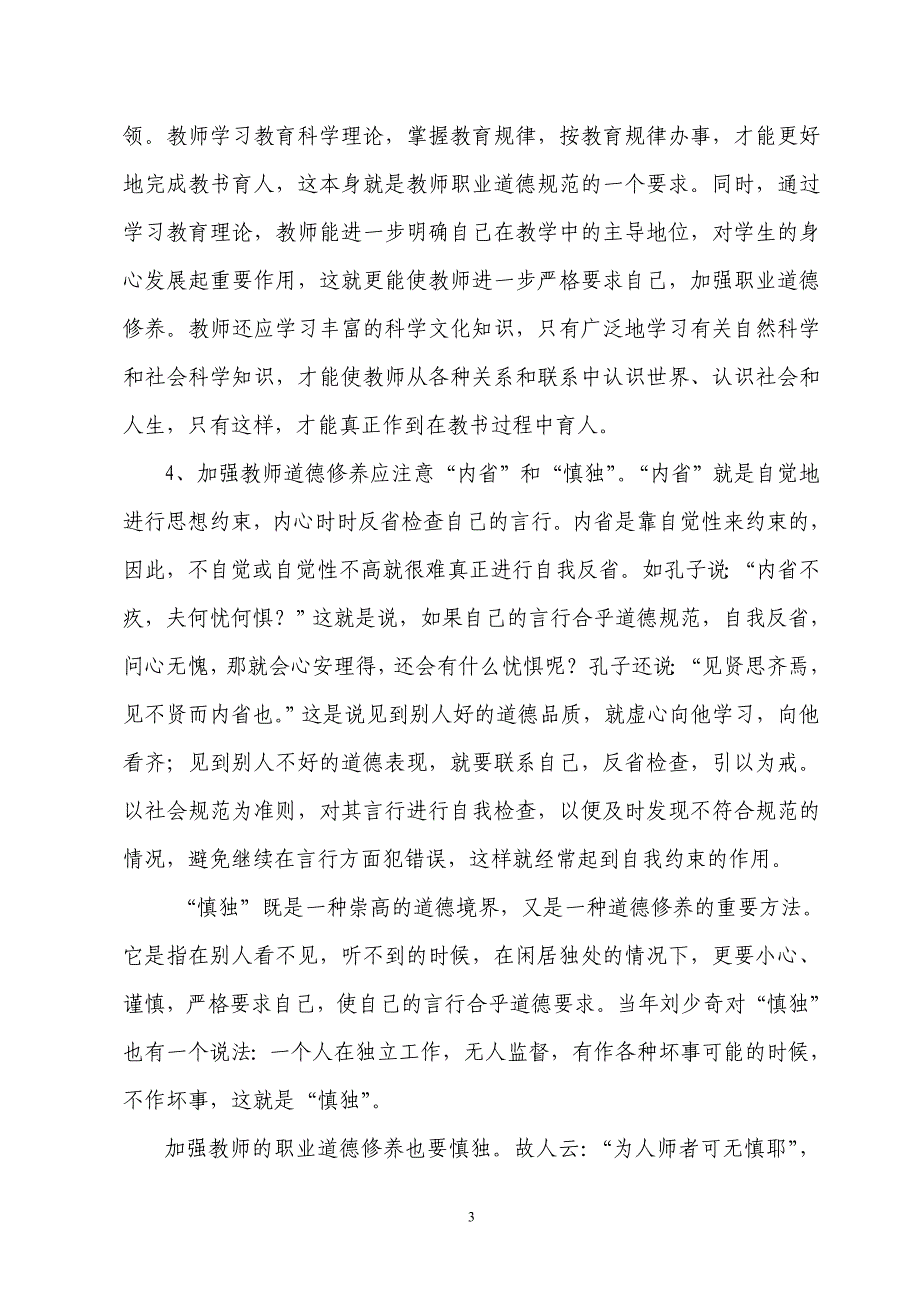 领。教师学习教育科学理论，掌握教育规律，按教育规律办事，才能更好
地完成教书育人，这本身就是教师职业道德规范的一个要求。同时，通过
学习教育理论，教师能进一步明确自己在教学中的主导地位，对学生的身
心发展起重要作用，这就更能使教师进一步严格要求自己，加强职业道德
修养。教师还应学习丰富的科学文化知识，只有广泛地学习有关自然科学
和社会科学知识，才能使教师从各种关系和联系中认识世界、认识社会和
人生，只有这样，才能真正作到在教书过程中育人。
4、加强教师道德修养应注意“内省”和“慎独”。“内省”就是自觉地
进行思想约束，内心时时反省检查自己的言行。内省是靠自觉性来约束的，
因此，不自觉或自觉性不高就很难真正进行自我反省。如孔子说：“内省不
疚，夫何忧何惧？”这就是说，如果自己的言行合乎道德规范，自我反省，
问心无愧，那就会心安理得，还会有什么忧惧呢？孔子还说：“见贤思齐焉，
见不贤而内省也。”这是说见到别人好的道德品质，就虚心向他学习，向他
看齐；见到别人不好的道德表现，就要联系自己，反省检查，引以为戒。
以社会规范为准则，对其言行进行自我检查，以便及时发现不符合规范的
情况，避免继续在言行方面犯错误，这样就经常起到自我约束的作用。
“慎独”既是一种崇高的道德境界，又是一种道德修养的重要方法。
它是指在别人看不见，听不到的时候，在闲居独处的情况下，更要小心、
谨慎，严格要求自己，使自己的言行合乎道德要求。当年刘少奇对“慎独”
也有一个说法：一个人在独立工作，无人监督，有作各种坏事可能的时候，
不作坏事，这就是“慎独”。
加强教师的职业道德修养也要慎独。故人云：“为人师者可无慎耶”，
3